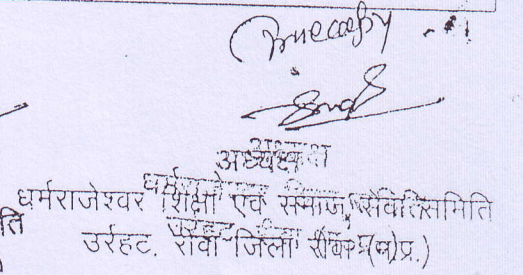 True copy
अध्यक्ष
धर्मराजेश्वर शिक्षा एवं समाज समिति
ति
उर्रहट. रीवा जिला रीवा (म.प्र.)